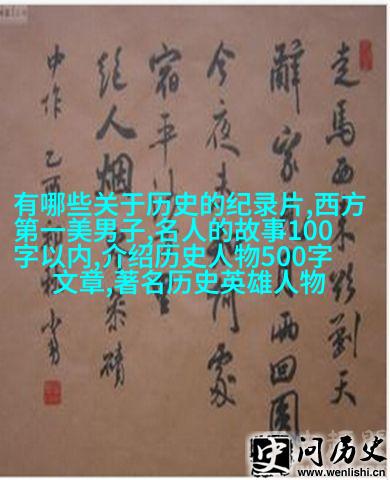 走馬西来欲到天
辭家 两回圆
今夜未 何處
宿平
絶人烟 岑参磧
中作 乙酉
有哪些关于历史的纪录片,西方
第一美男子,名人的故事100
字以内,介绍历史人物500字
文章,著名历史英雄人物
史问历史
www.wenlishi.cn